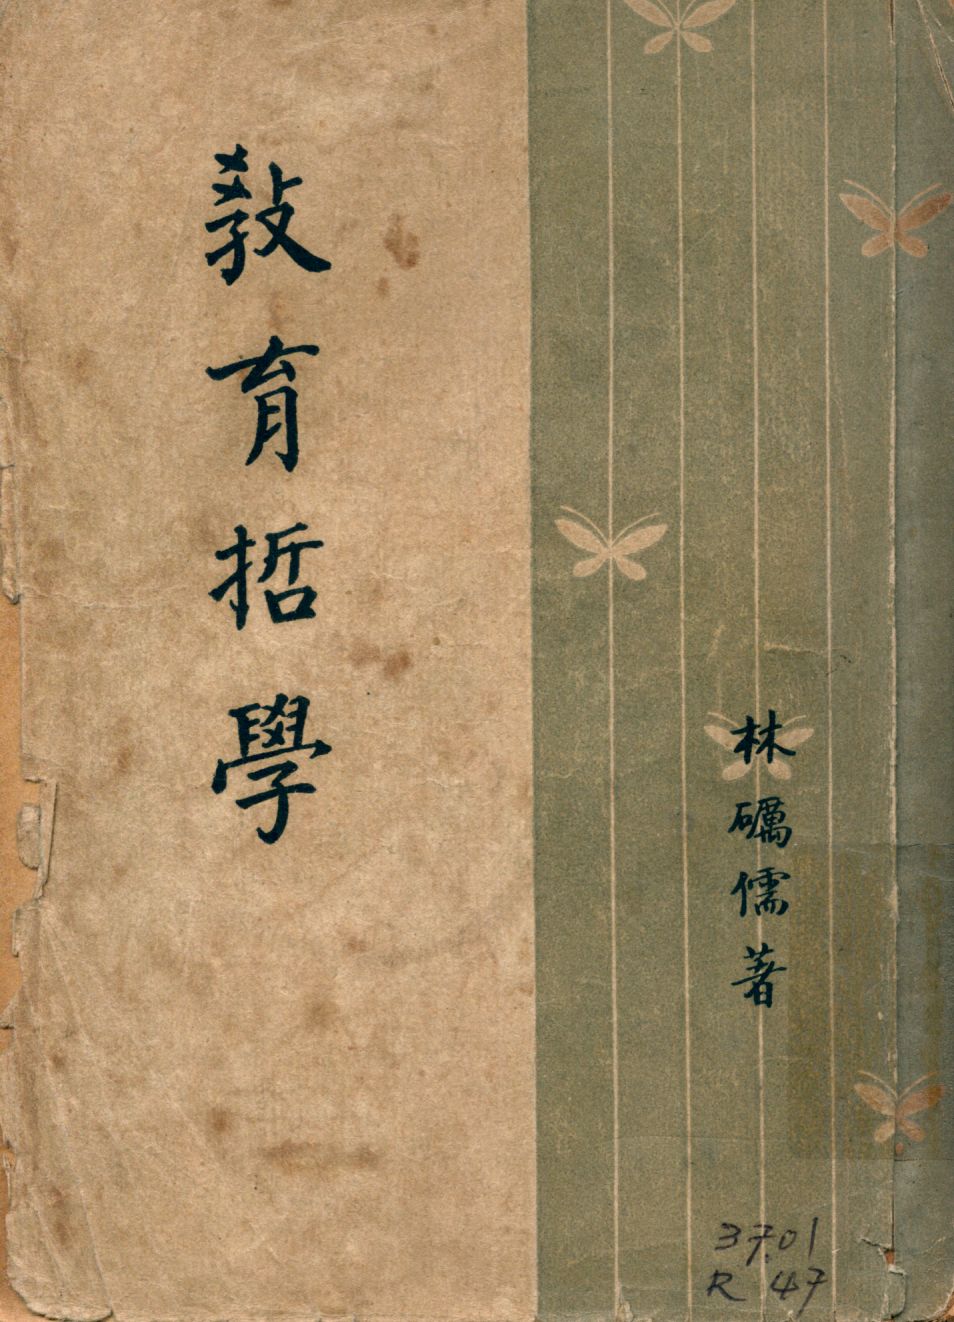 教育哲學
林礪儒著
37.01
R 47